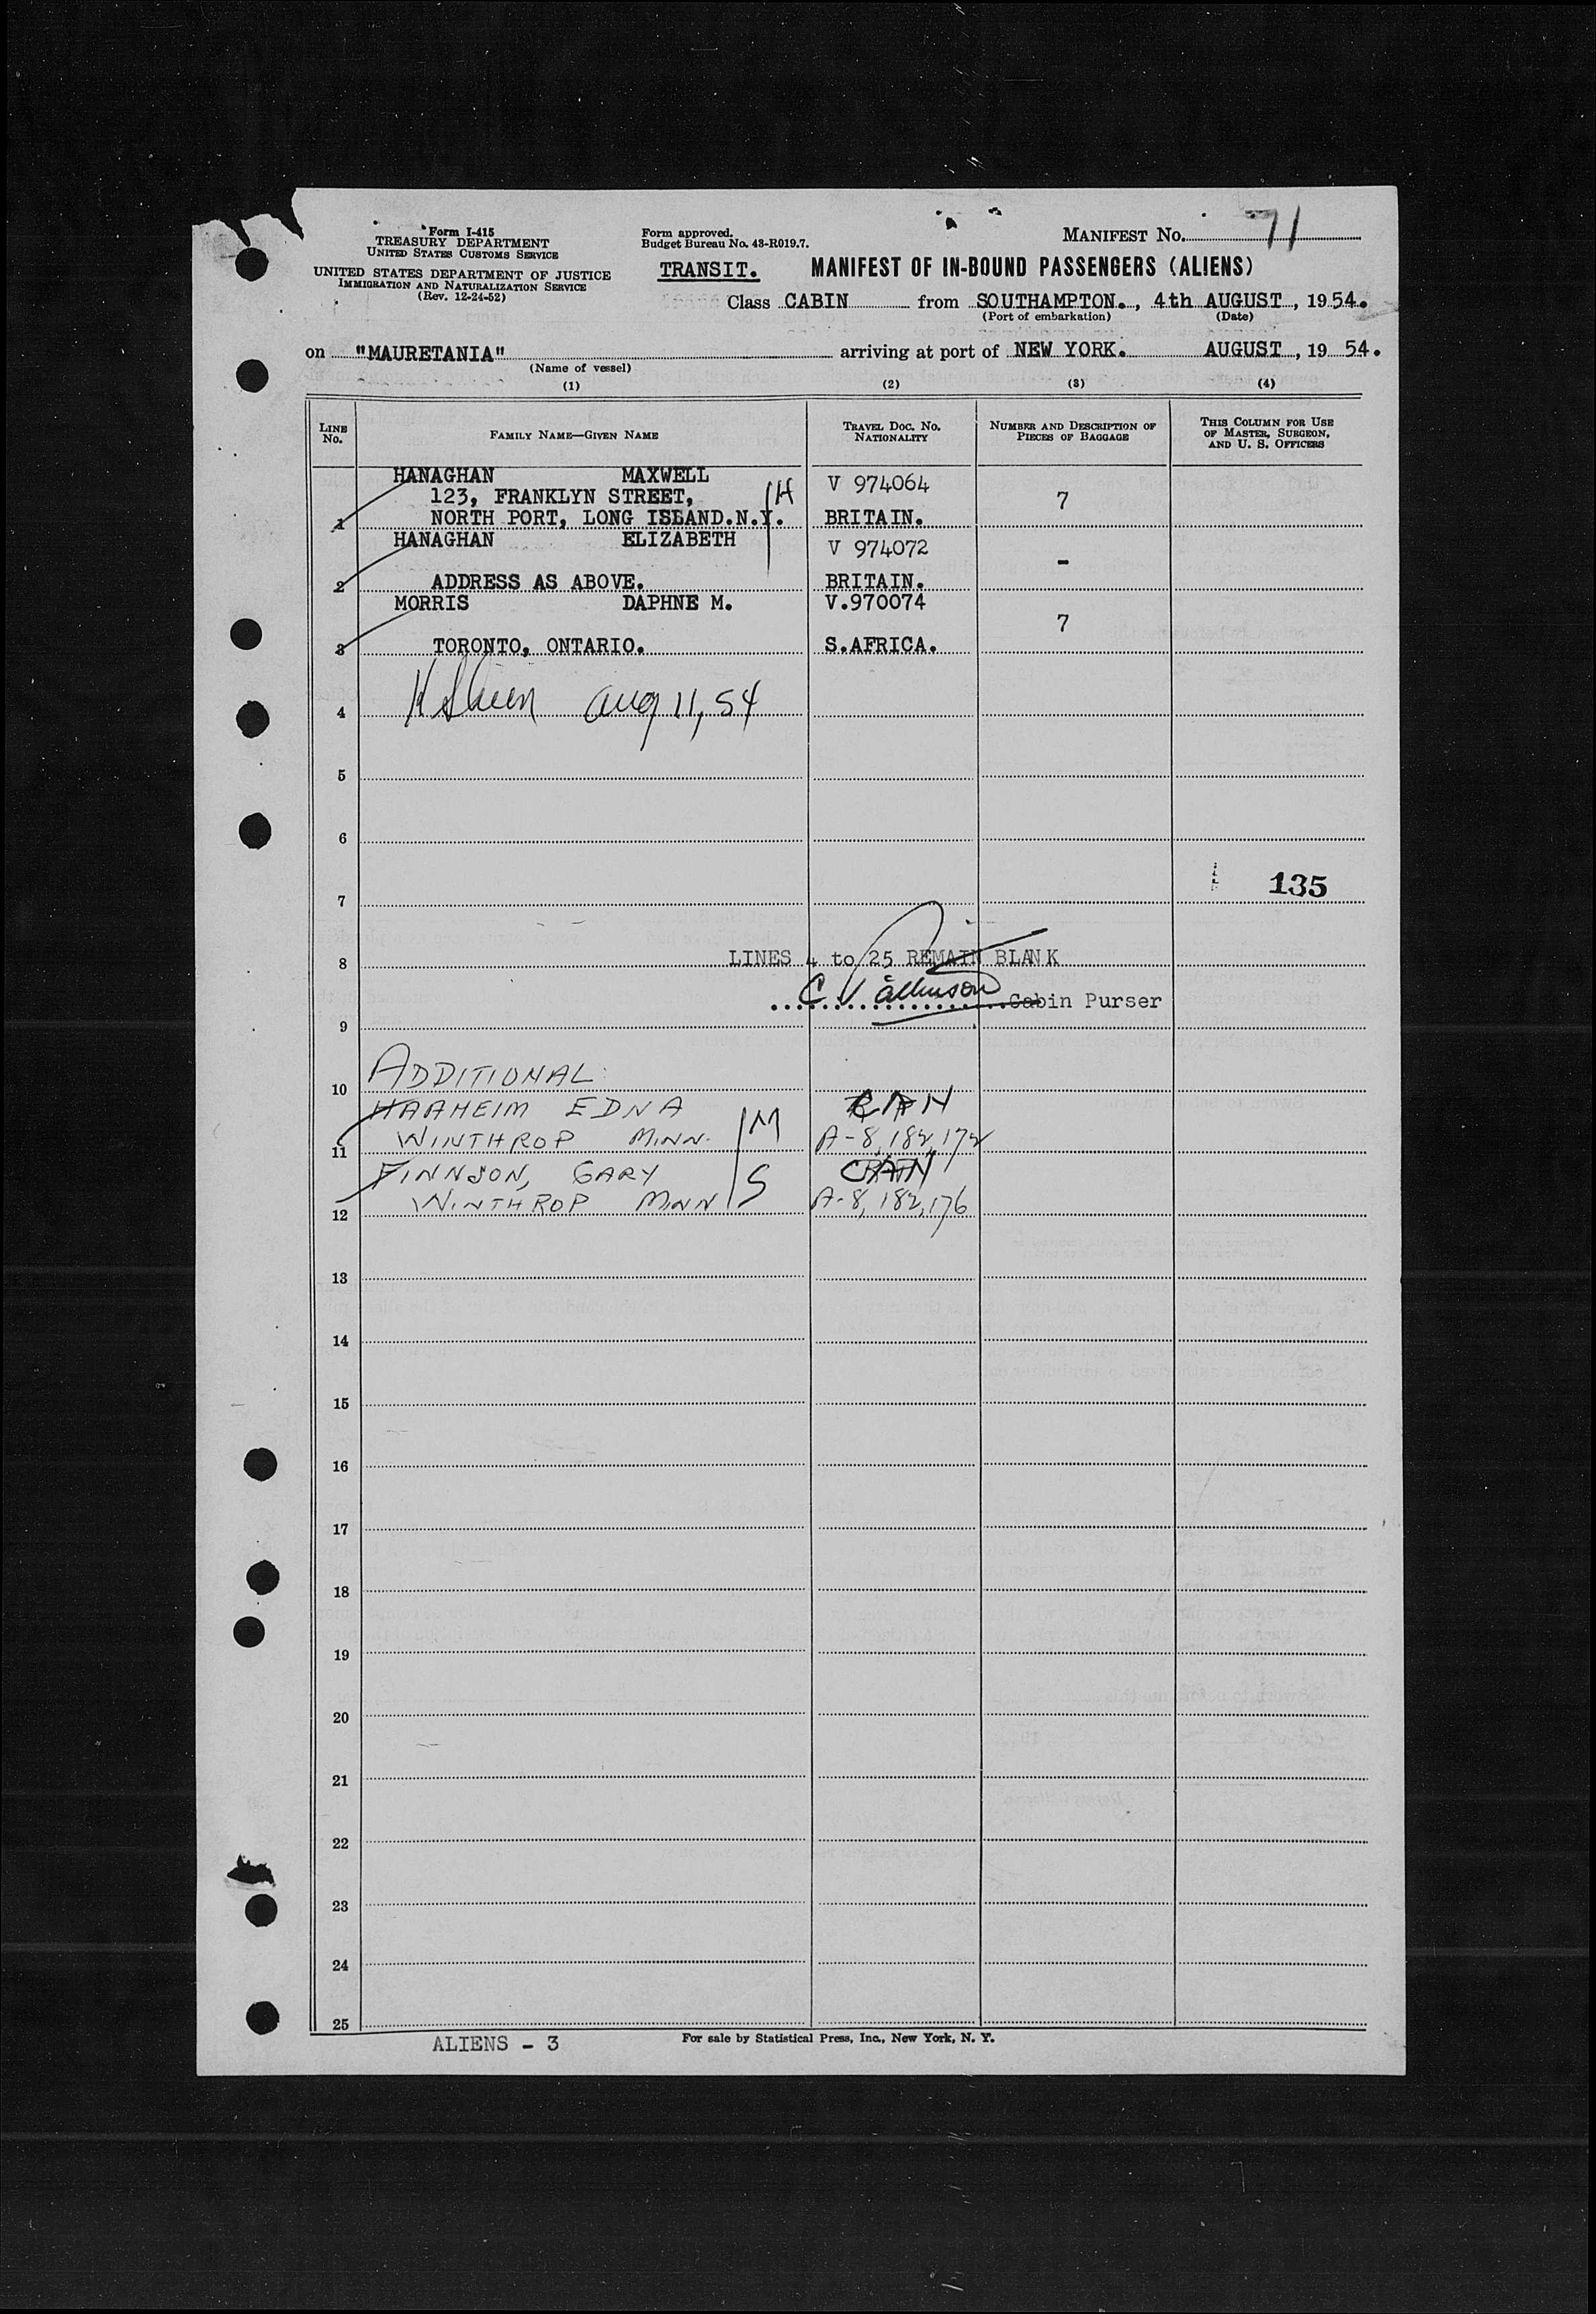 Form I-415
TREASURY DEPARTMENT
UNITED STATES CUSTOMS SERVICE
UNITED STATES DEPARTMENT OF JUSTICE
IMMIGRATION AND NATURALIZATION SERVICE
(Rev. 12-24-52)
Form approved.
Budget Bureau No. 43-R019.7.
MANIFEST No. 71
TRANSIT. MANIFEST OF IN-BOUND PASSENGERS (ALIENS)
Class CABIN from SOUTHAMPTON., 4th AUGUST, 1954.
(Port of embarkation) (Date)
on "MAURETANIA" arriving at port of NEW YORK. AUGUST, 19 54.
(Name of vessel)
(1) (2) (3) (4)
LINE No. FAMILY NAME—GIVEN NAME TRAVEL DOC. No. NATIONALITY NUMBER AND DESCRIPTION OF PIECES OF BAGGAGE THIS COLUMN FOR USE OF MASTER, SURGEON, AND U. S. OFFICERS
HANAGHAN MAXWELL V 974064
123, FRANKLYN STREET, H 7
1 NORTH PORT, LONG ISLAND.N.Y. BRITAIN.
HANAGHAN ELIZABETH V 974072
-
2 ADDRESS AS ABOVE. BRITAIN.
MORRIS DAPHNE M. V.970074
7
3 TORONTO, ONTARIO. S.AFRICA.
4 Aug 11, 54
5
6
135
7
8 LINES 4 to 25 REMAIN BLANK
Cabin Purser
9
10 ADDITIONAL:
HAAHEIM EDNA
11 WINTHROP MINN. M A-8,182,172
FINNSON, GARY CAN
12 WINTHROP MINN S A-8,182,176
13
14
15
16
17
18
19
20
21
22
23
24
25
ALIENS - 3 For sale by Statistical Press, Inc., New York, N. Y.